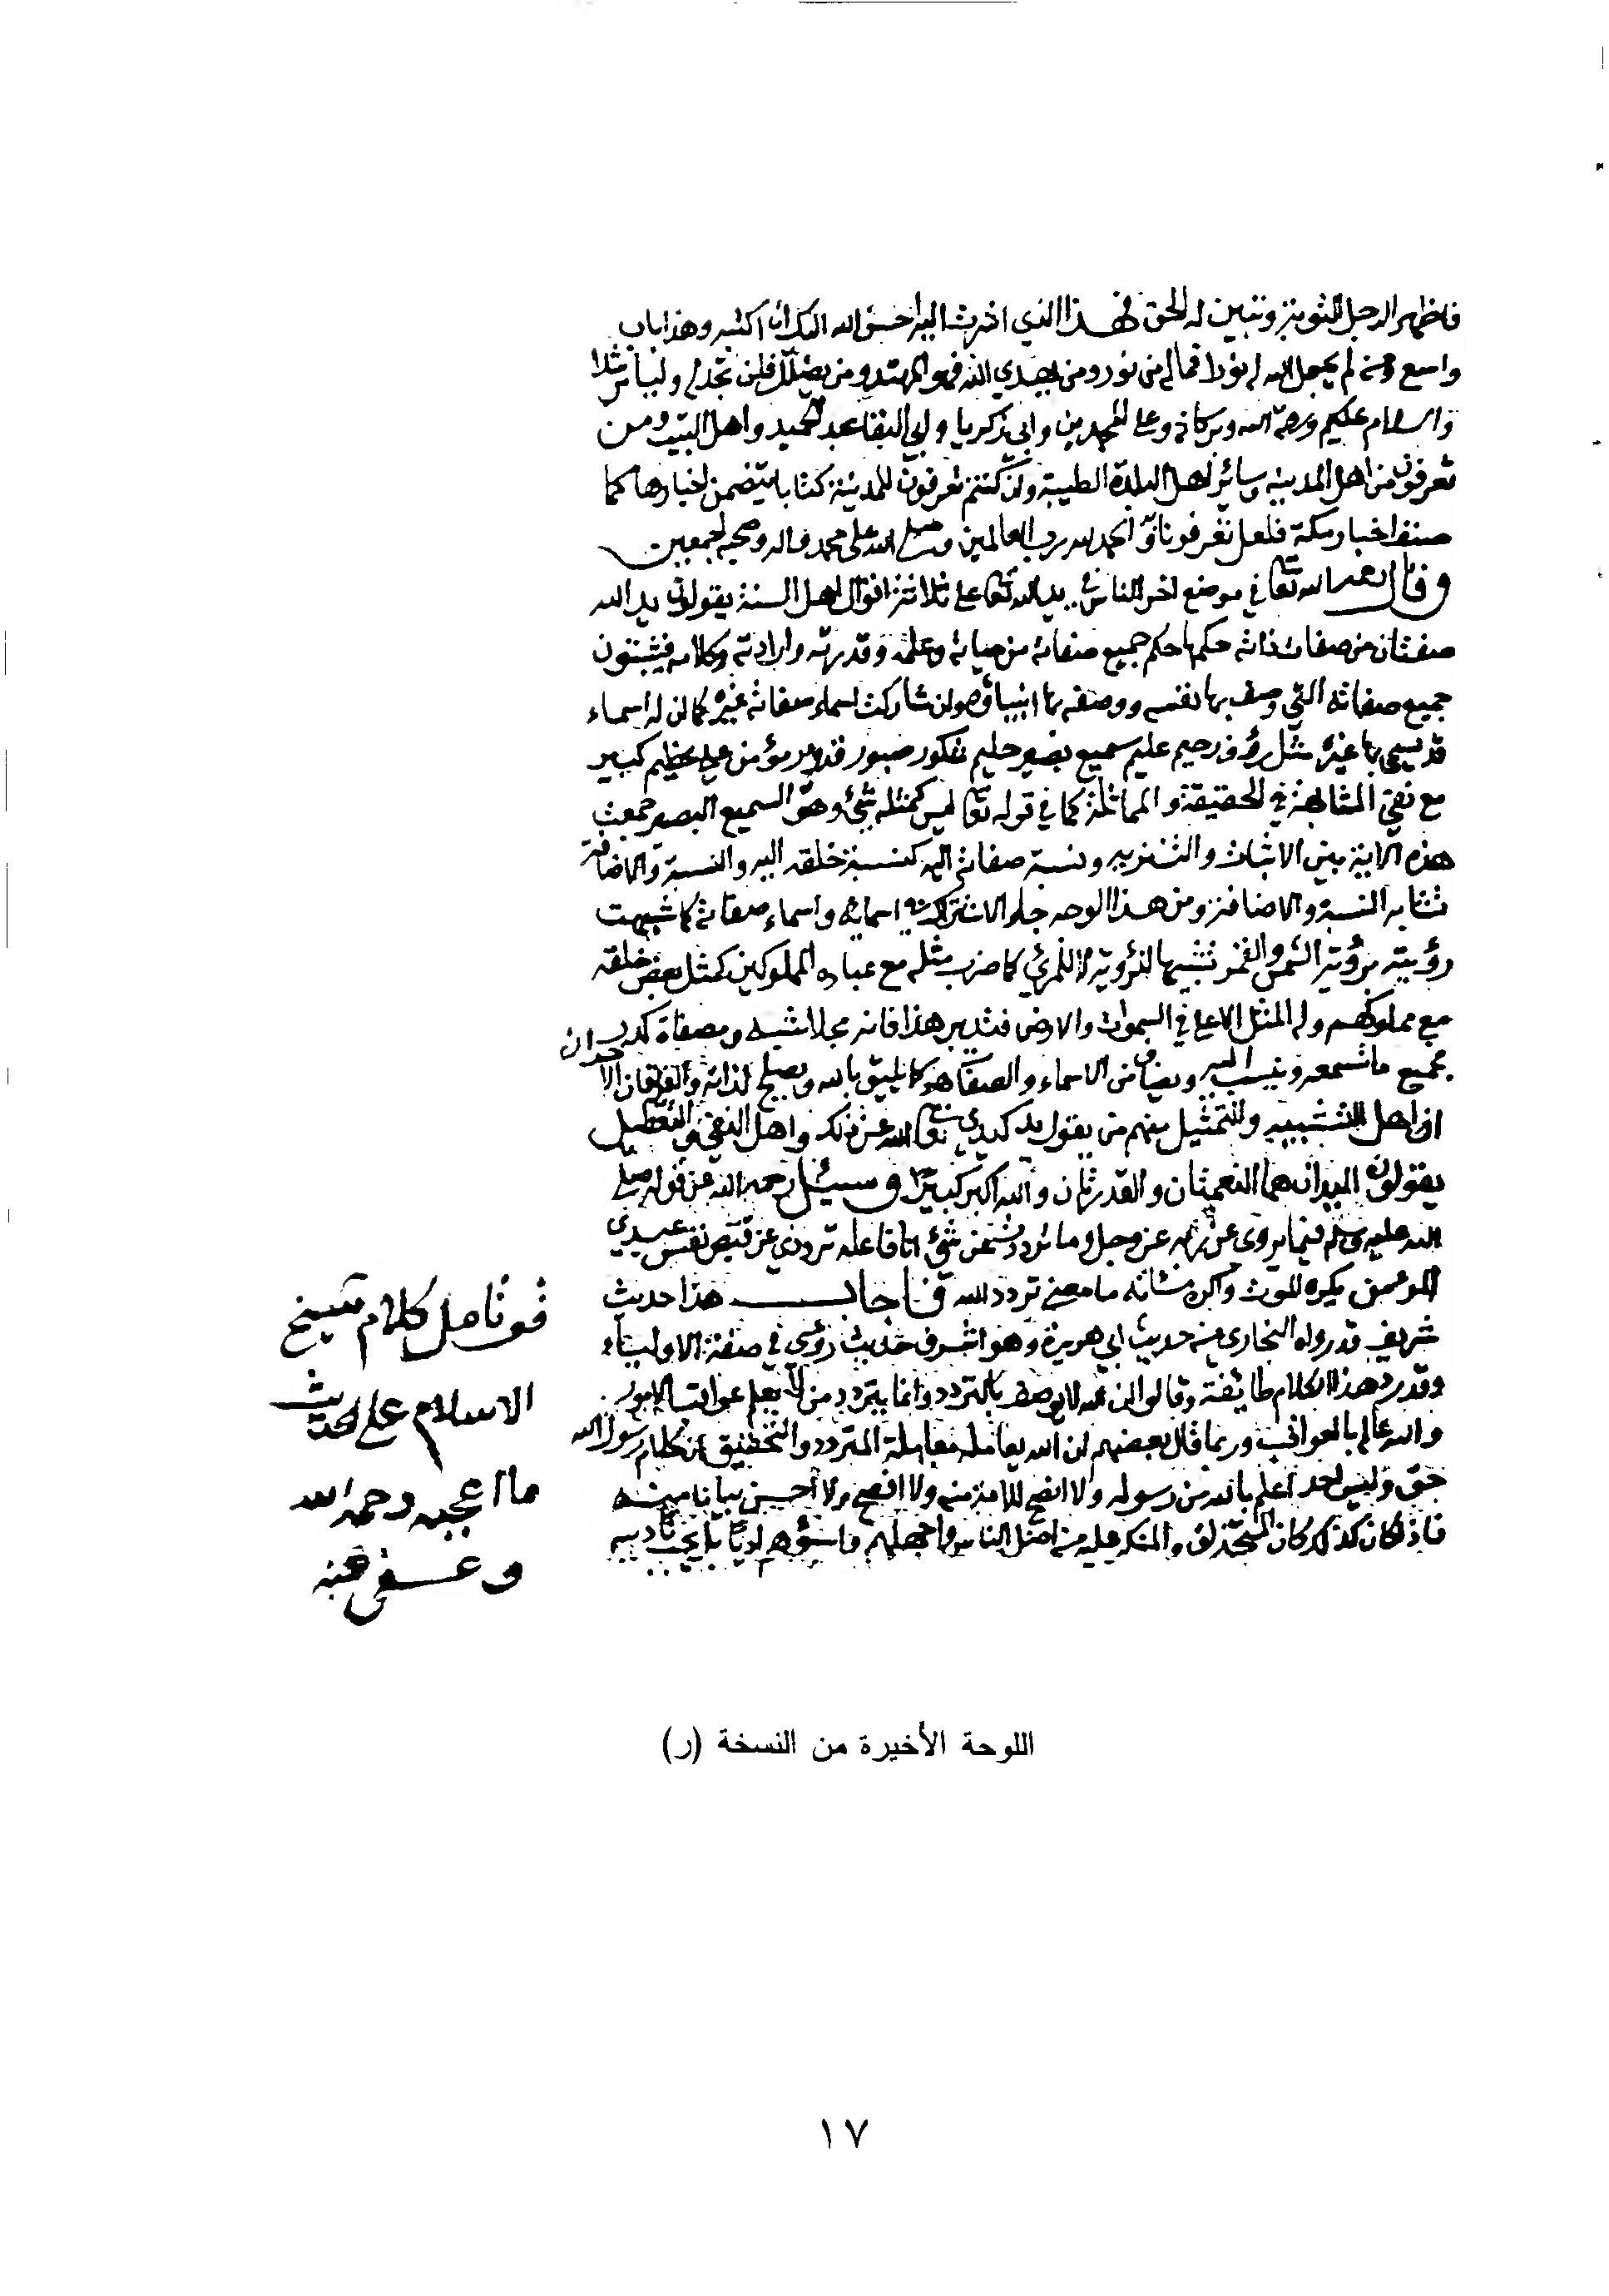 فاظهر الرجل التوبة وتبين له الحق فهذا الذي اشرت اليه احسن الله اليك ان اكتبه وهذا باب
واسع ومن لم يجعل الله له نورا فما له من نور ومن يهدي الله فهو المهتد ومن يضلل فلن تجد له وليا مرشدا
والسلام عليكم ورحمة الله وبركاته وعلى المحمدين وابي زكريا وابي البقا عبد المجيد واهل البيت ومن
تعرفون من اهل المدينة وسائر اهل البلدة الطيبة وان كنتم تعرفون للمدينة كتابا يتضمن اخبارها كما
صنف اخبار مكة فلعل تعرفونا والحمد لله رب العالمين وصلى الله على محمد واله وصحبه اجمعين
وقال رحمه الله تعا في موضع اخر الناس في يد الله تعا على ثلاثة اقوال اهل السنة يقولون يد الله
صفتان من صفات ذاته حكمها حكم جميع صفاته من حياته وعلمه وقدرته وارادته وكلامه فيثبتون
جميع صفاته التي وصف بها نفسه ووصفه بها انبياؤه وان شاركت اسماء صفاته غيره كما ان له اسماء
قد يسمى بها غيره مثل رؤف رحيم عليم سميع بصير حليم شكور صبور قدير مؤمن علي عظيم كبير
مع نفي المشابهة في الحقيقة والمماثلة كما في قوله تعا ليس كمثله شئ وهو السميع البصير جمعت
هذه الاية بين الاثبات والتنزيه ونسبة صفاته اليه كنسبة خلقه اليه والنسبة والاضافة
تشابه النسبة والاضافة ومن هذا الوجه جاء الاشتراك في اسمائه واسماء صفاته كما شبهت
رؤيته برؤية الشمس والقمر تشبيها للرؤية لا للمرئي كما ضرب مثله مع عباده المملوكين كمثل بعض خلقه
مع مملوكهم وله المثل الاعلى في السموات والارض فتدبر هذا فانه مجلا شبه ومصفاة كدر
جميع ما تسمعه وينسب اليه ويضاف من الاسماء والصفا هو كما يليق بالله ويصلح لذاته والفريقان الاخران
اذا اهل التشبيه والتمثيل منهم من يقول يد كيدي تعا الله عن ذلك واهل النفي والتعطيل
يقولون اليدان هما النعمتان والقدرتان والله اكبر كبيرا وسئل رحمه الله عن قوله صلى
الله عليه وسلم فيما يروي عن ربه عز وجل وما ترددت عن شئ انا فاعله ترددي عن قبض نفس عبدي
المؤمن يكره الموت واكره مساته ما معنى تردد الله فاجاب هذا حديث
شريف قد رواه البخاري من حديث ابي هريرة وهو اشرف حديث روي في صفة الاولياء
وقد رد هذا الكلام طائفة وقالوا ان الله لا يوصف بالتردد وانما يتردد من لا يعلم عواقب الامور
والله عالم بالعواقب وربما قال بعضهم ان الله يعامله معاملة المتردد والتحقيق ان كلام رسول الله
حق وليس احد اعلم بالله من رسوله ولا انصح للامة منه ولا افصح ولا احسن بيانا منه
فاذا كان كذلك كان المتحذلق والمنكر عليه من اضل الناس واجهلهم واسوئهم ادبا بل يجب تاديبه
فوتامل كلام شيخ
الاسلام على الحديث
ما اعجبه رحمه الله
وعفى عنه
اللوحة الأخيرة من النسخة (ر)
١٧